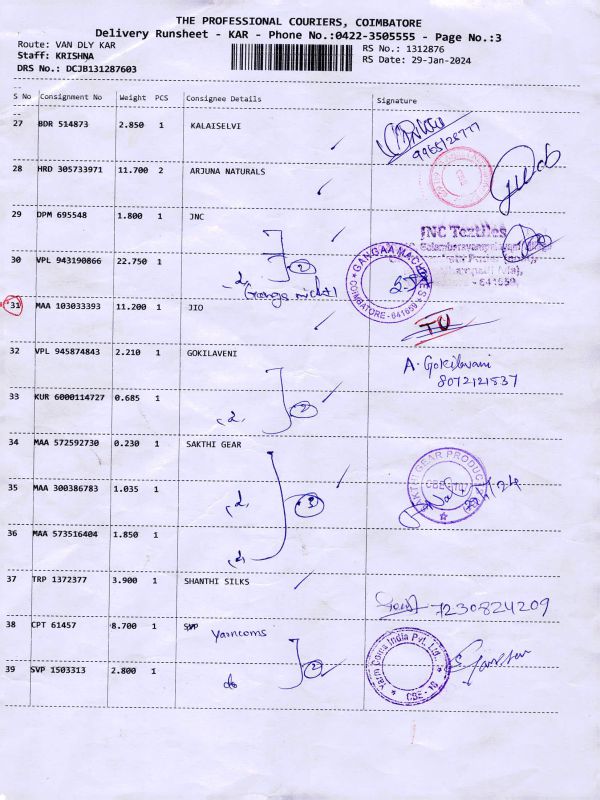 THE PROFESSIONAL COURIERS, COIMBATORE
Delivery Runsheet - KAR - Phone No.:0422-3505555 - Page No.:3
Route: VAN DLY KAR RS No.: 1312876
Staff: KRISHNA RS Date: 29-Jan-2024
DRS No.: DCJB131287603
S No Consignment No Weight PCS Consignee Details Signature
27 BDR 514873 2.850 1 KALAISELVI
28 HRD 305733971 11.700 2 ARJUNA NATURALS
29 DPM 695548 1.800 1 JNC
JNC Textiles
30 VPL 943190866 22.750 1 2
GANGAA MACHINES
COIMBATORE - 641659
- 641659
31 MAA 103033393 11.200 1 JIO TU
32 VPL 945874843 2.210 1 GOKILAVENI A. Gokilavani
8072121537
33 KUR 6000114727 0.685 1 2
34 MAA 572592730 0.230 1 SAKTHI GEAR
SAKTHI GEAR PRODUCTS
35 MAA 300386783 1.035 1 3
36 MAA 573516404 1.850 1
37 TRP 1372377 3.900 1 SHANTHI SILKS
7230824209
38 CPT 61457 8.700 1 SVP Yarncoms
Yarn Coms India Pvt. Ltd.
CBE - 18
39 SVP 1503313 2.800 1 do 2